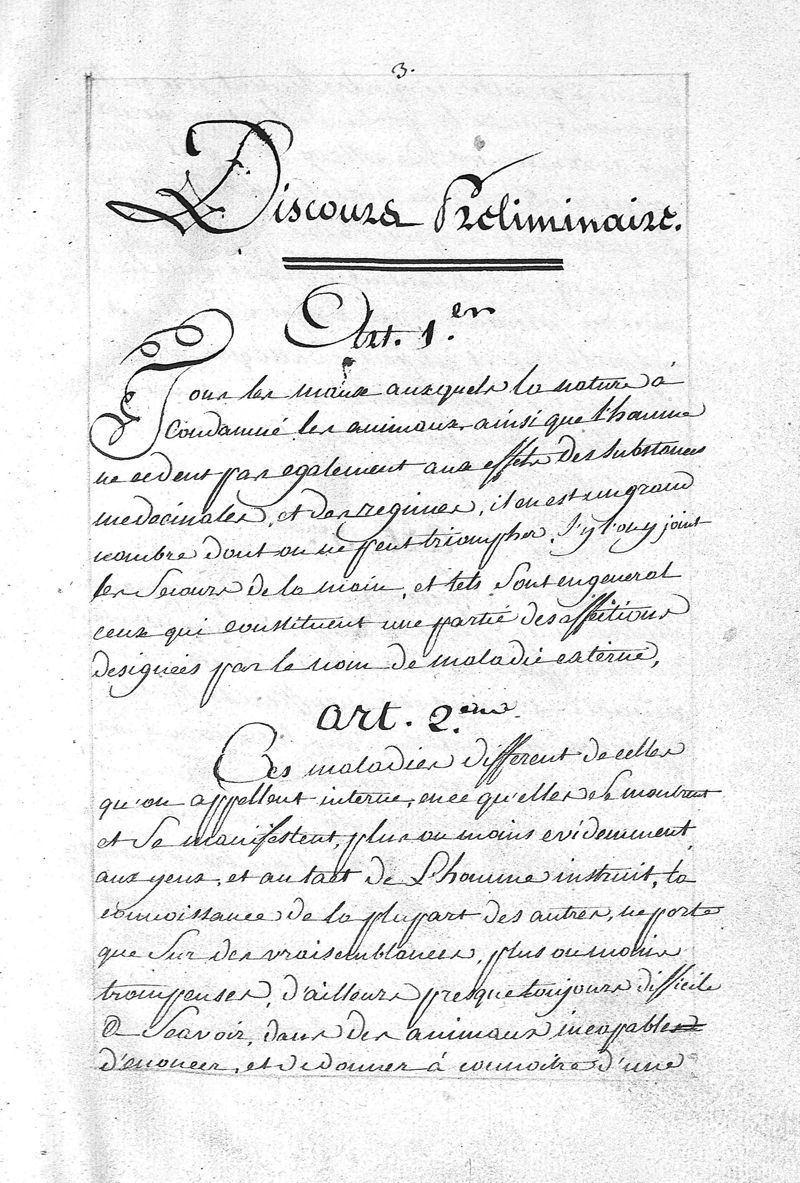 3.
Discours Préliminaire.
Art. 1.er
Tous les maux auxquels la nature à
Condamné les animaux ainsi que l'homme
ne cedent pas également aux effets des substances
medecinales, et des regimes, il en est un grand
nombre dont on ne peut triompher, S'y l'on y joint
les Secours de la main, et tels Sont en general
ceux qui constituent une partie des affections
designées par le nom de maladie externe,
art. 2.eme
Ces maladies different de celles
qu'on appellent interne, en ce qu'elles se montrent
et Se manifestent, plus ou moins evidemment
aux yeux, et au tact de L'homme instruit, la
connoissance de la plupart des autres, ne porte
que Sur des vraisemblances, plus ou moins
trompeuses, d'ailleurs presque toujours difficile
a Scavoir, dans des animaux incapables
d'enoncer, et de donner à connoitre d'une